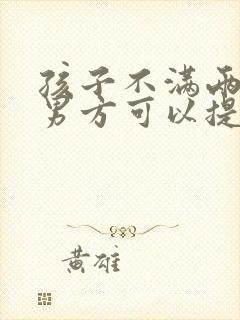 孩子不满两
男方可以提
黄雄